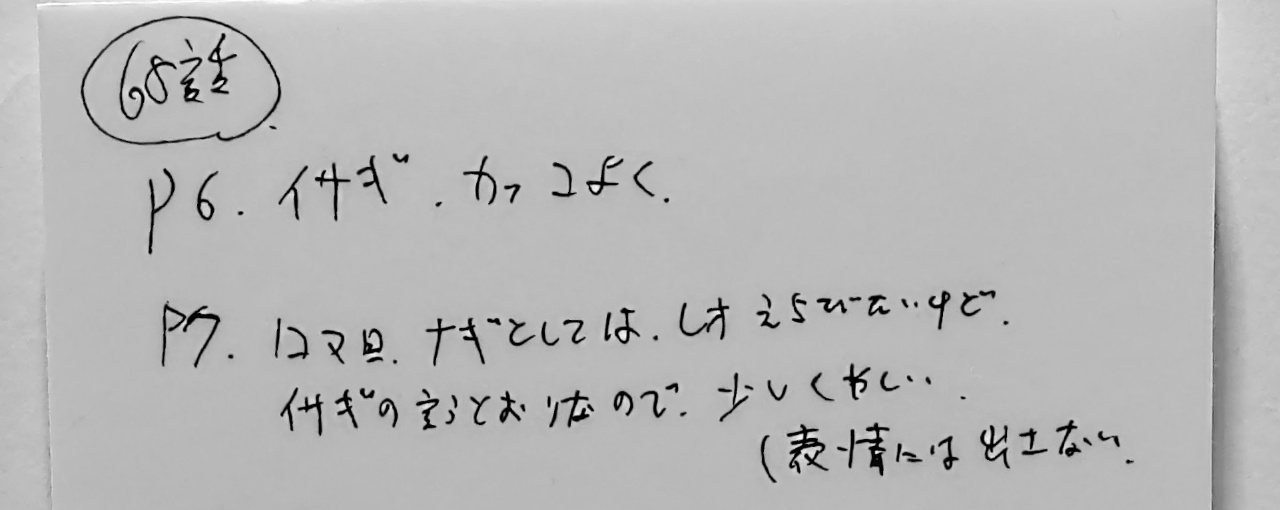 68話
P6. イサギ.カッコよく.
P7. 1コマ目.ナギとしては.しオえらびたいけど.
イサギの言うとおりなので.少しくやしい.
(表情には出さない.